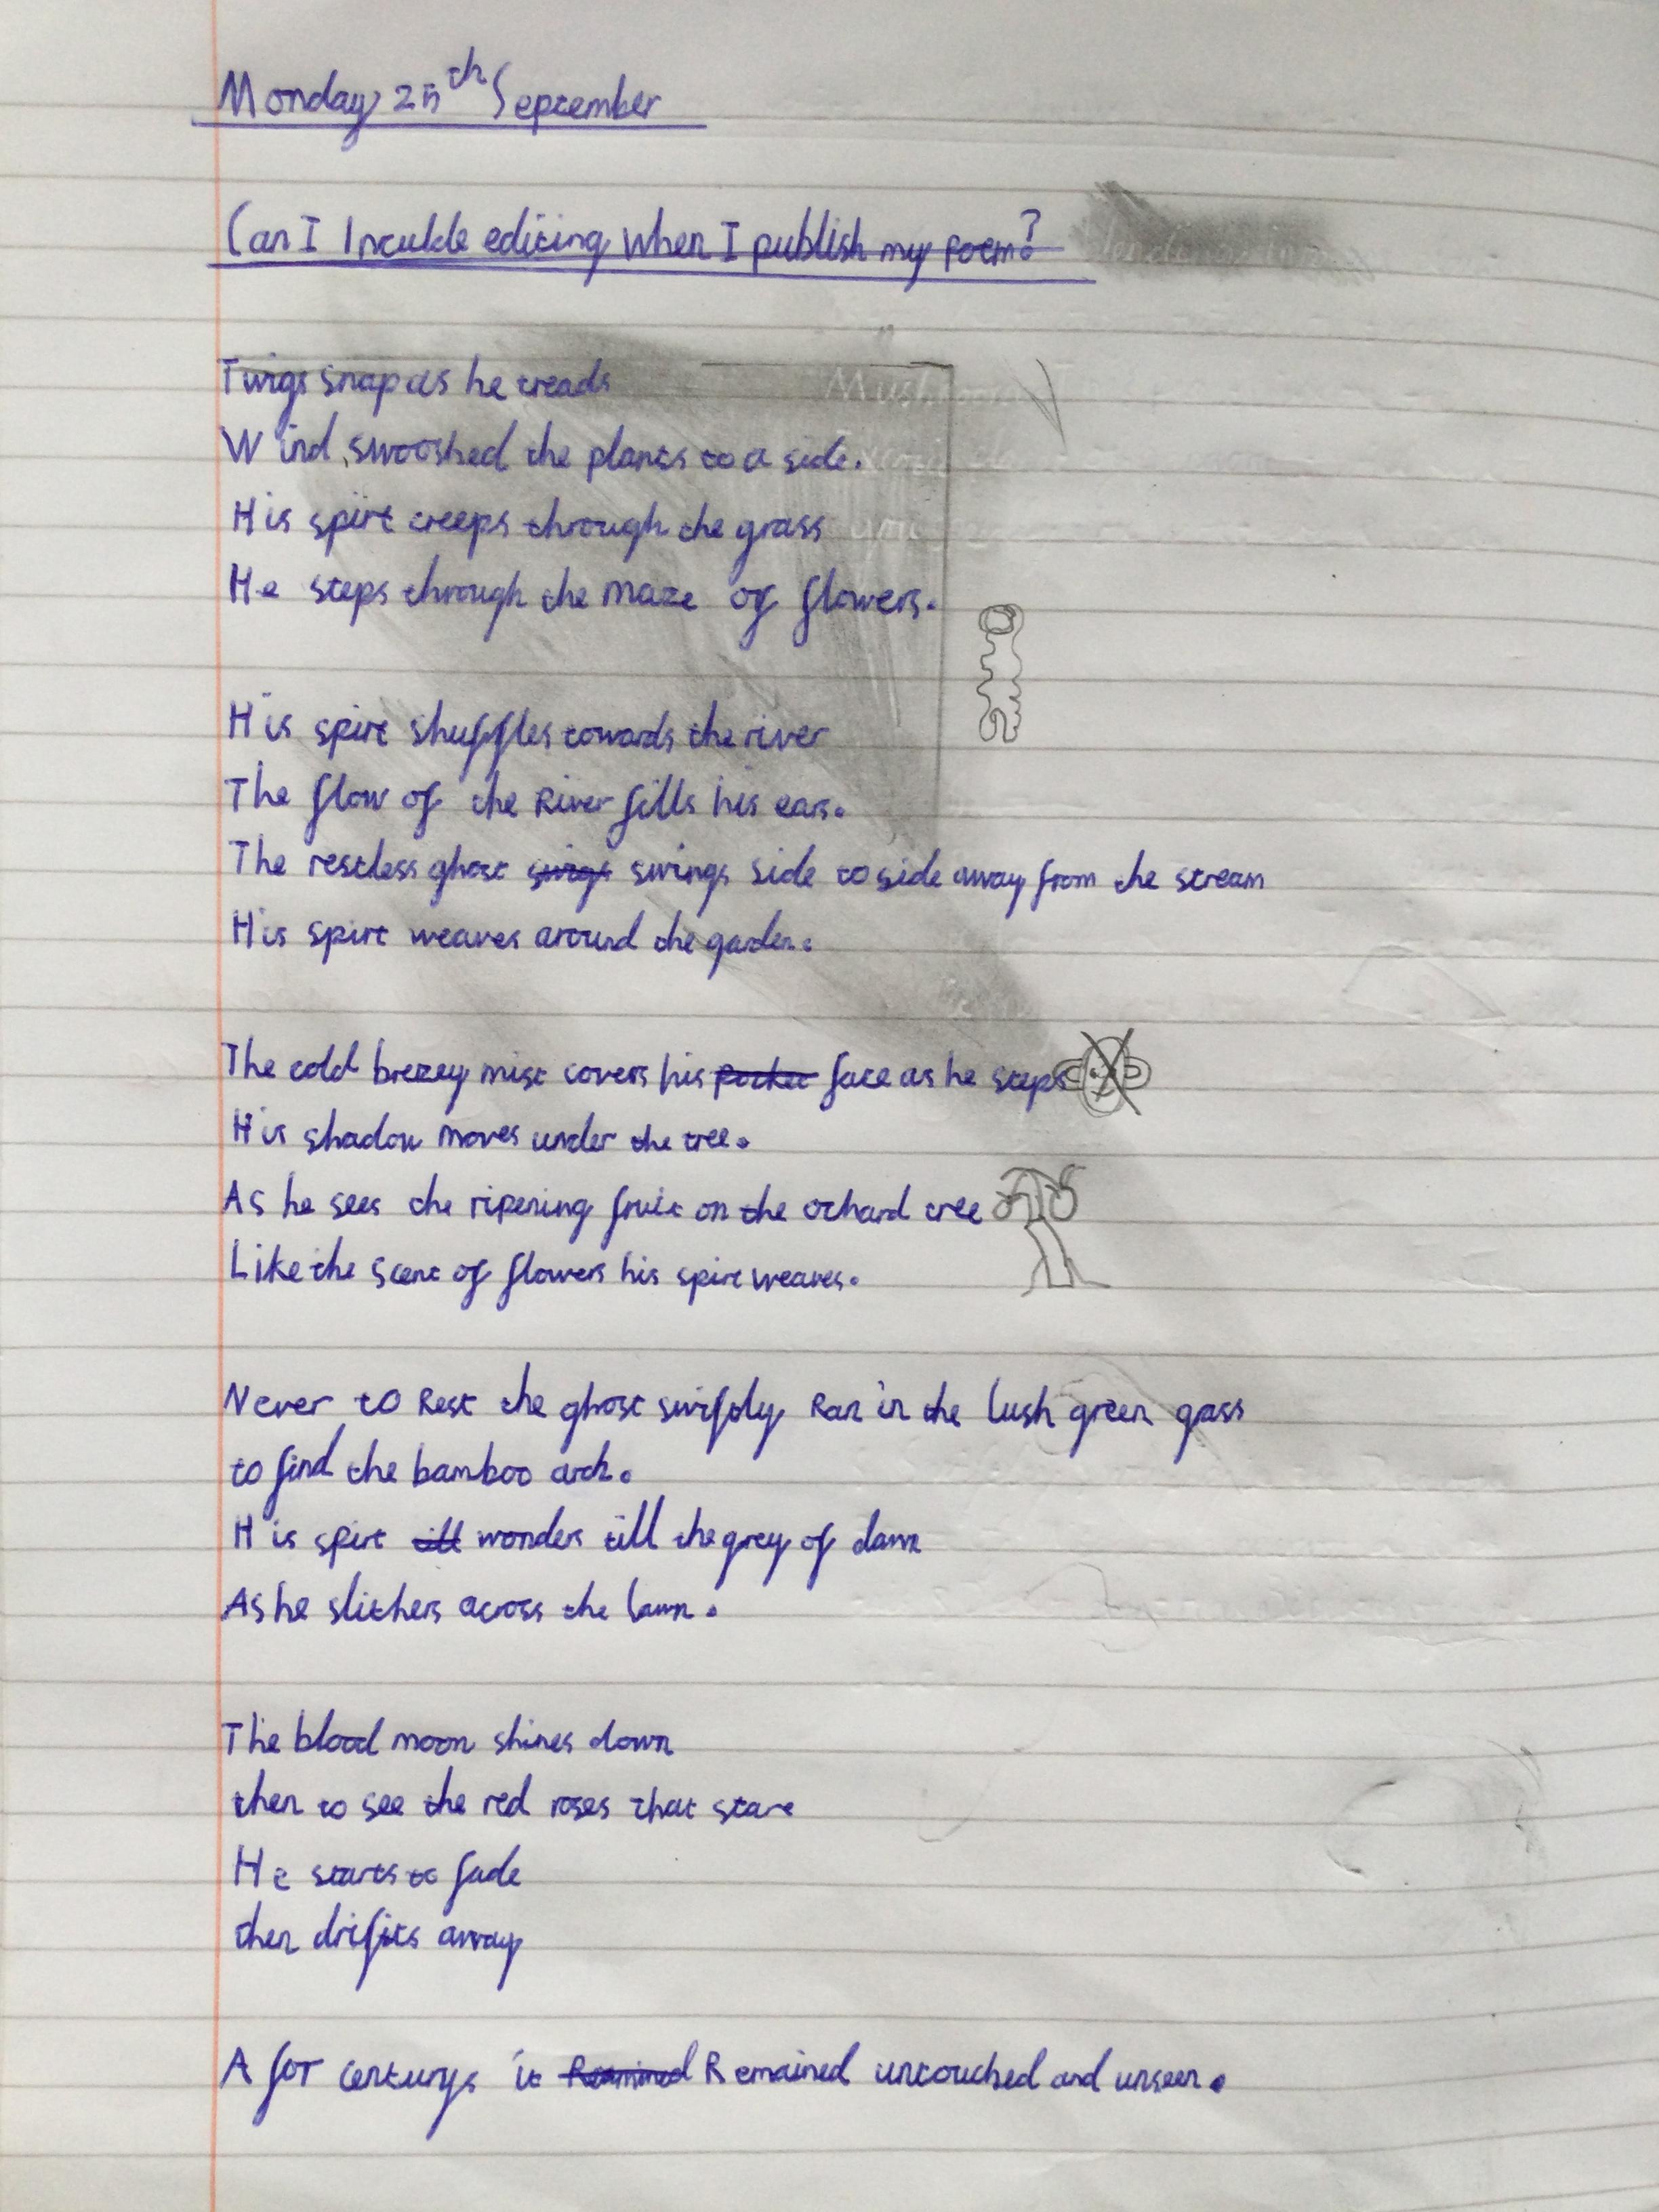 Monday 25th September
Can I Inculde editing when I publish my poem?
Twigs snap as he treads
Wind swooshed the plants to a side.
His spirt creeps through the grass
He steps through the maze of flowers.
His spirt shuffles towards the river
The flow of the River fills his ears.
The restless ghost swigs swings side to side away from the stream
His spirt weaves around the garden.
The cold brezey mist covers his pocket face as he steps
His shadow moves under the tree.
As he sees the ripening fruit on the ochard tree
Like the scent of flowers his spirt weaves.
Never to Rest the ghost swiftly Ran in the lush green grass
to find the bamboo arch.
His spirt till wonders till the grey of dawn
As he slithers across the lawn.
The blood moon shines down
then to see the red roses that stare
He starts to fade
then drifts away
A for centurys it Remained untouched and unseen.